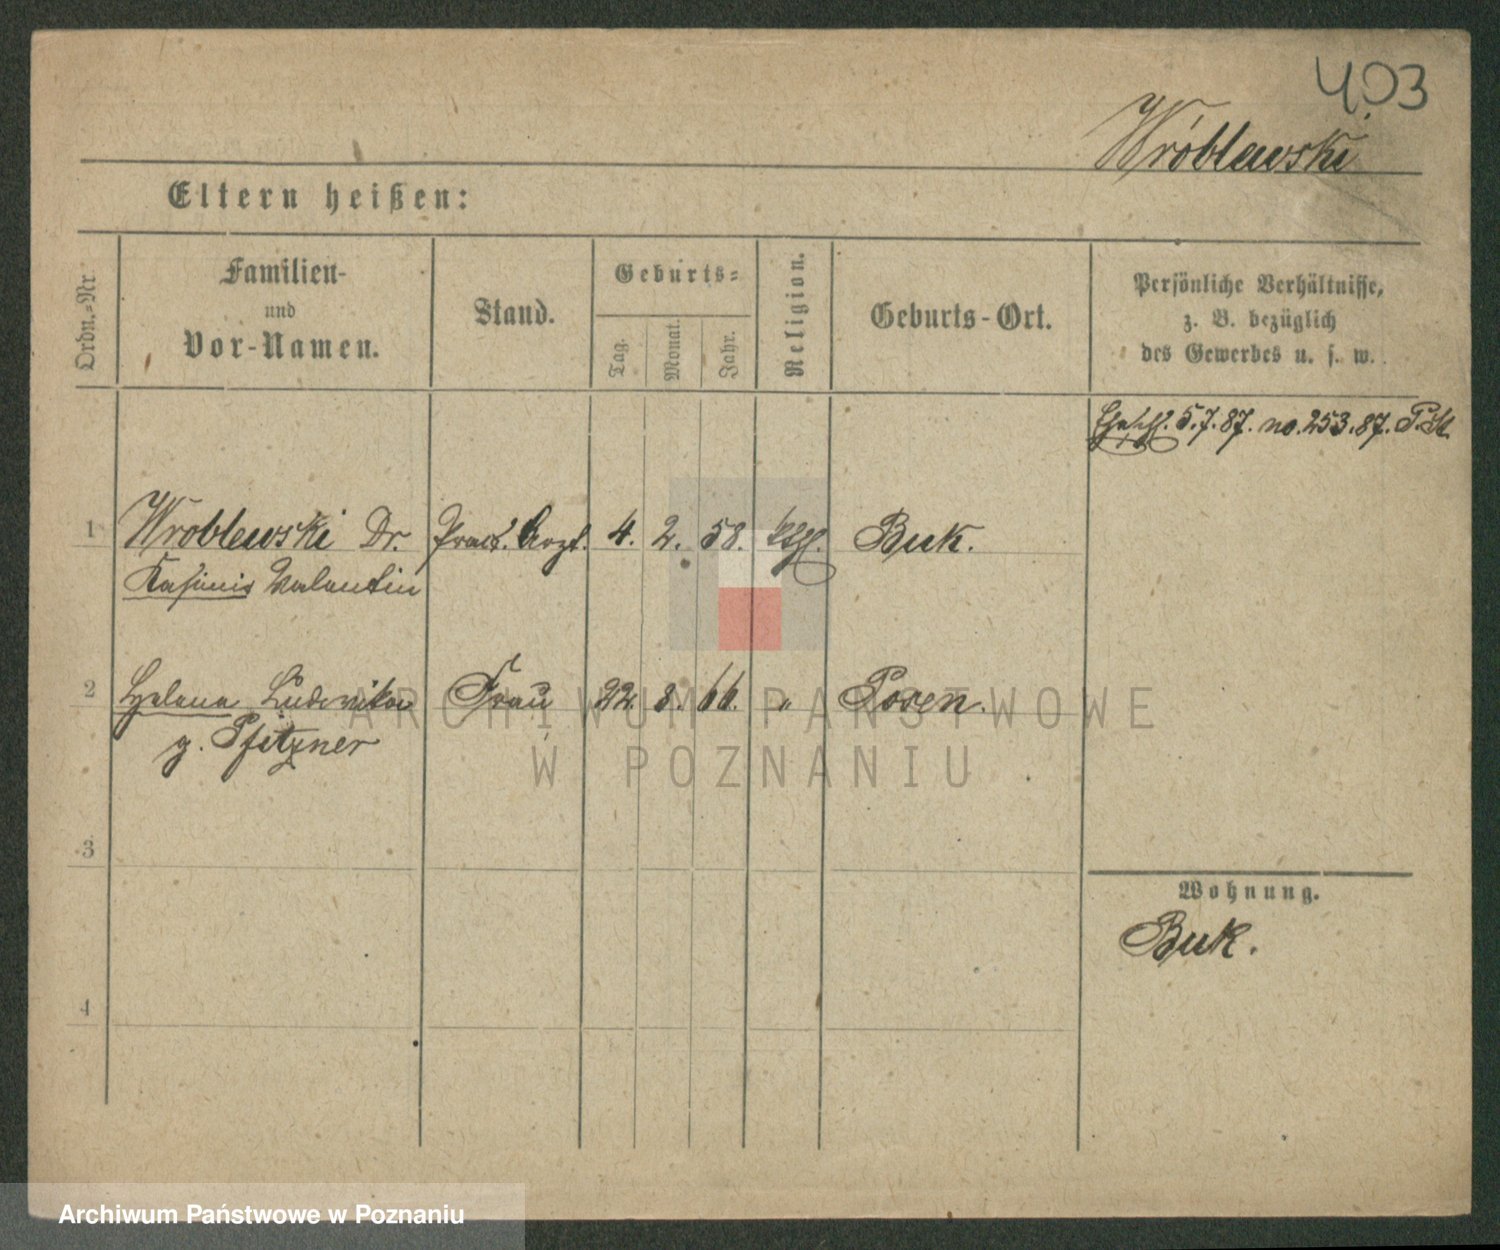 403
Wróblewski
Eltern heißen:
Ordn.-Nr.
Familien-
und
Vor-Namen.
Stand.
Geburts-
Tag.
Monat.
Jahr.
Religion.
Geburts-Ort.
Persönliche Verhältnisse,
z. B. bezüglich
des Gewerbes u. s. w.
5.7.87. no. 253.87. P.St.
1 Wroblewski Dr. Pract. Arzt. 4. 2. 58. Buk.
Kasimir Valentin
2 Helena Ludovika Frau 22. 8. 66. " Posen.
g. Pfitzner
3
Wohnung.
Buk.
4
ARCHIWUM PAŃSTWOWE
W POZNANIU
Archiwum Państwowe w Poznaniu